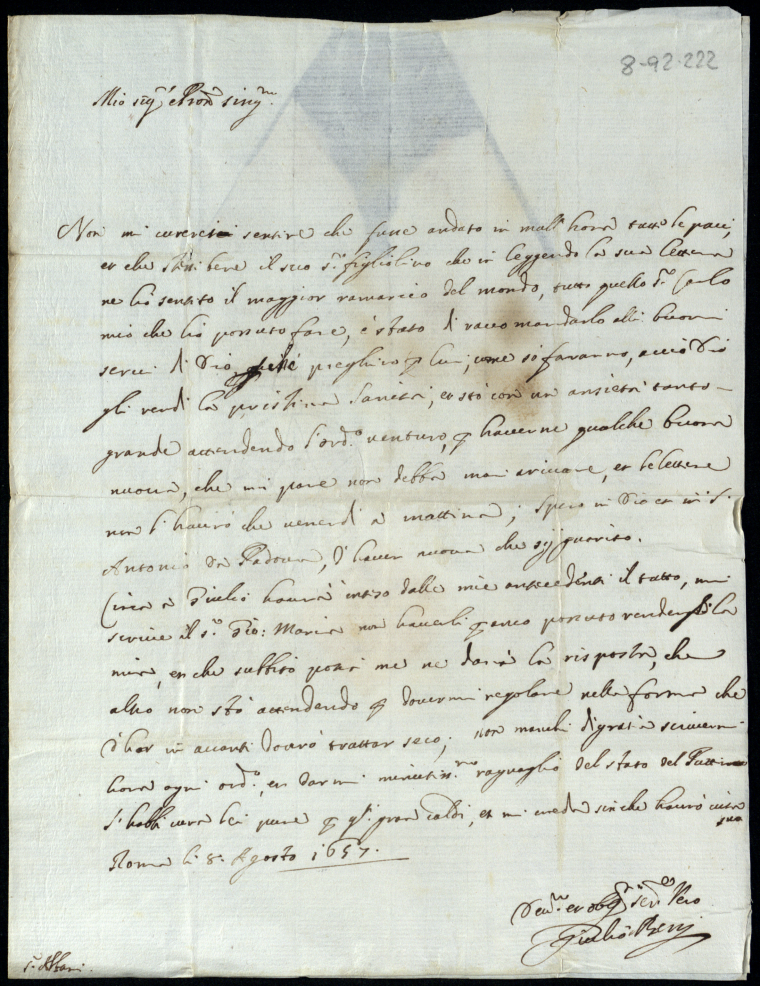 8-92-222
Mio sig.r e Pron sing.mo
Non mi curerei sentire che fusse andato in mall' hora tutte le paci,
et che stasse bene il suo s.r figliolino che in leggendo la sua lettera
ne hò sentito il maggior ramarico del mondo, tutto quello S.r Carlo
mio che hò possuto fare, è stato di raccomandarlo alli buoni
servi di Dio perche preghino p lui, come si faranno, acciò Dio
gli rendi la pristina sanità, et stò con un ansietà tanto
grande attendendo l'ord.o venturo, p haverne qualche buona
nuova, che mi pare non debba mai arivare, et le lettere
non l'haurò che venerdi à mattina; spero in Dio et in S.
Antonio da Padova, d'haver nuova che sij guarito.
Circa à Giulio haurà inteso dalle mie antecedenti il tutto, mi
scrive il s.r Gio: Maria non haverli p anco possuto rendergli la
mia, et che subbito poi me ne darà la risposta, che
altro non stò attendendo p dovermi regolare nella forma che
d'hor in avanti dovrò trattar seco; non manchi di gratia scrivermi
hora ogni ord.o, et darmi minutiss.mo raguaglio del stato del Puttino
S'habbi cura lei pure p q.ti gran caldi, et mi creda sinche haurò vita
suo
Roma li 8: Agosto 1657.
Dev.mo et obg.mo ser.re vero
Giulio
S.r